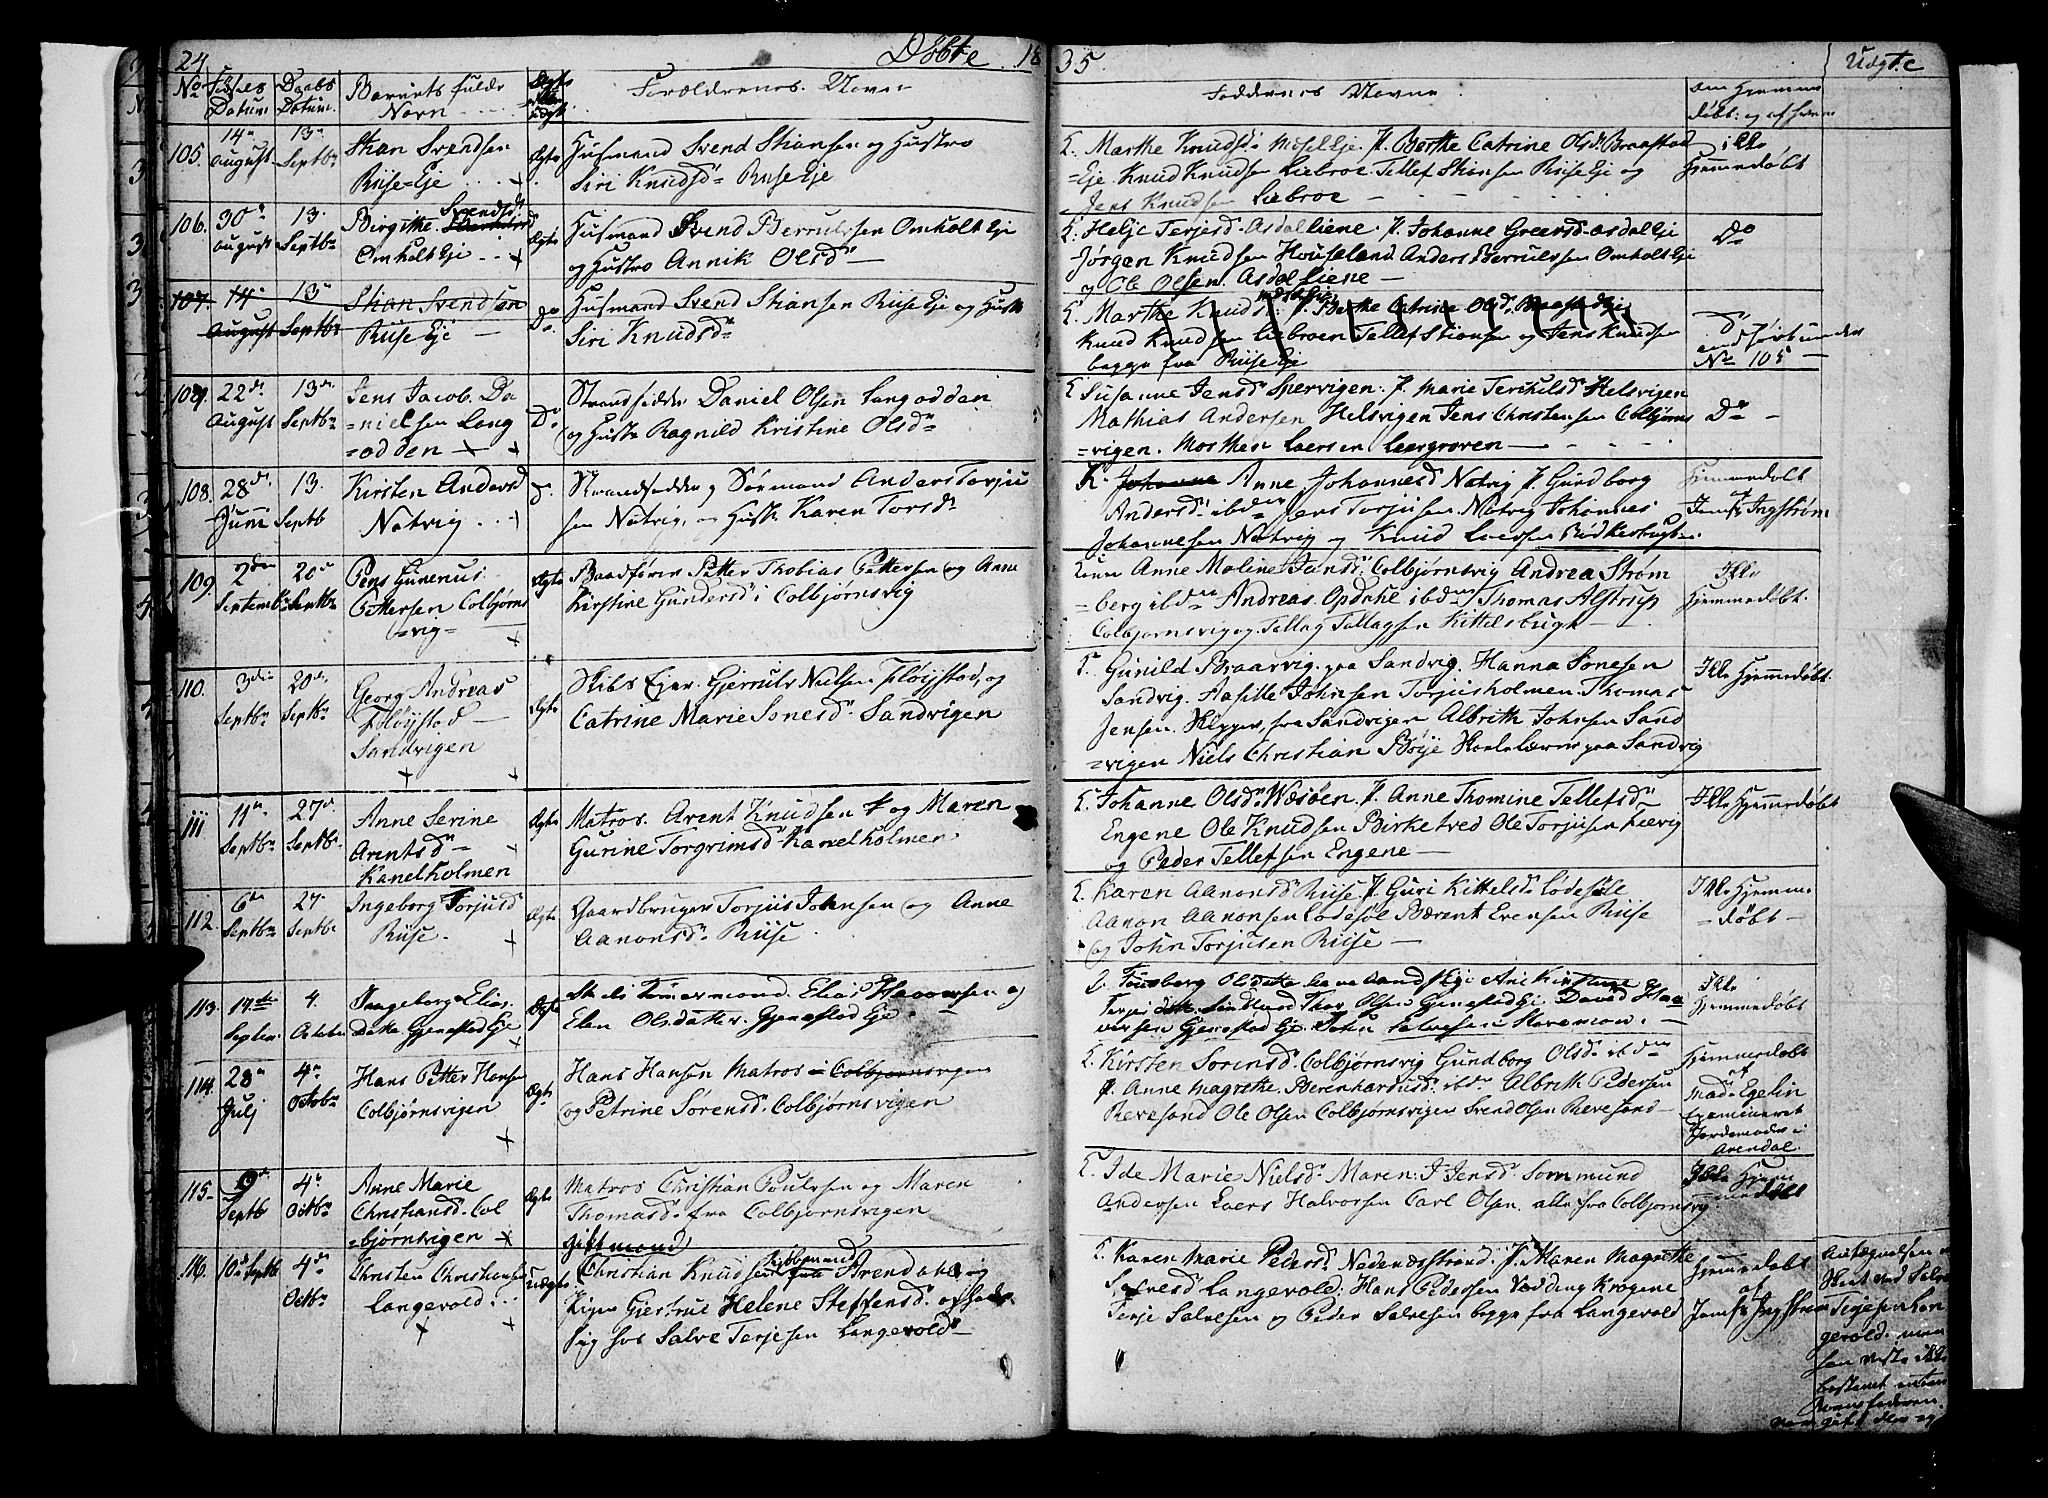 24. Døbte 1835 Udgte
No Fødsels Datum Daabs Datum Barnets fulde Navn Ægte eller uægt. Forældrenes Navne Faddernes Navne om Hjemmedøbt og af hvem
105. 14de August 13de Septbr Stian Svendsen Riise=Eje Ægte Husmand Svend Stiansen og Hustro
Siri Knudsd. Riise Eje
E. Marthe Knudsd. Eje. P. Berthe Catrine Olsd. Braastad
=Eje Knud Knudsen Liebroe Tellef Stiansen Riise Eje og
Jens Knudsen Liebroe
ikke Hjemmedøbt
106. 30te August 13. Septbr Birgithe Svendsd. Omholt Eje Ægte Husmand Svend Berrulvsen Omholt Eje
og Hustro Annik Olsd.
E. Helje Terjesd. Asdal liene P. Johanne Greersd. Asdal Eje
Jørgen Knudsen Houseland Anders Berrulvsen Omholt Eje
og Ole Olsen Asdal Liene
Do
107. 14de August 13de Septbr Stian Svendsen Riise Eje Do Husmand Svend Stiansen Riise Eje og Hust.
Siri Knudsd.
E. Marthe Knudsd. P. Berthe Catrine Olsd. Braastad Eje
Knud Knudsen Liebroen Tellef Stiansen og Jens Knudsen
begge fra Riise Eje
indført under
No 105
107. 22de August 13de Septbr Jens Jacob Da=
=nielsen Lang
=odden
Do Strandsidder Daniel Olsen Langodden
og Hustr. Ragnild Kristine Olsd.
E Susanne Jensd. Spervigen: P. Marie Terkilsd. Helsvigen
Mathias Andersen Helsvigen Jens Christensen Colbjørns
=vigen. Morthen Laersen Leergroven
Do
108. 28de Juni 13. Septb Kirsten Andersd
Natvig
D. Strandsidder og Sørmand Anders Torju
sen Natvig, og Hustr. Karen Torsd.
K. Johanne Anne Johannesd Natvig P. Gundborg
Andersd. ibden Jens Torjusen Natvig Johannes
Johannesen Natvig og Knud Laersen
Hjemmedøbt
af
Jomfr Ingstrøm
109. 2den September 20de Septbr Pens Gunerius
Pettersen Colbjørns
=vig=
Ægte Baadfører Petter Thobias Pettersen og Anne
Kirstine Gundersd. Colbjørnsvig
Anne Maline Jansd. Colbjørnsvig Andrea Strøm
=berg ibden Andreas Opdahl ibden Thomas Alstrup
Colbjørnsvig og Tallag Tallagsen Kittelsbugt
Ikke
Hjemmedøbt.
110. 3die Septbr 20de Septbr Georg Andreas
Fløystad
Sandvigen
Ægte Skibs Ejer Gjerrulv Nielsen Fløystad, og
Catrine Marie Jonesd. Sandvigen
E. Gunild Braarvig paa Sandvig. Hanna Jonesen
Sandvig, Johnsen Torjusholmen Thomas
Jensen. Skipper, fra Sandvigen Albrith Johnsen Sand
=vigen Niels Christian Bøije Skolelærer paa Sandvig
Ikke Hjemmedøbt.
111 11te Septbr 27de Septbr Anne Serine
Arentsd
Kanelholmen
Ægte Matros. Arent Knudsen og Maren
Gurine Torgrimsd Kanelholmen
E. Johanne Olsd. Wesøen. P. Anne Thomine Tellefsd.
Engene Ole Knudsen Birketved Ole Torjusen Leevig
og Peder Tellefsen Engene
Ikke Hjemmedøbt
112. 6te Septbr 27. Septbr Ingeborg Torjusd
Riise.
Ægte Gaardbruger Torjus Johnsen og Anne
Aanonsd. Riise
E. Karen Aanonsd Riise P. Guri Kittelsd. Lødesøl
Aanon Aanonsen Lødesøl Bærent Evensen Riise
og John Torjusen Riise
Ikke Hjemme
=døbt
113. 17de Septbr. 4. October Ingeborg Elias
Datter Gjenestad Eje
Ægte Skibstømermand. Elias Havorsen og
Elen Olsdatter. Gjenestad Eje.
Olsdatter Ane Kirstine
Terjes Thor Olsen Gjenestad Eje. David Haa
vorsen Gjenestad Eje. John Salvesen
Ikke
Hjemmedøbt
114. 28de Julj 4de Octobr Hans Petter Hansen
Colbjørnsvigen
Ægte Hans Hansen Matros i Colbjørnsvigen
og Petrine Sørensd. Colbjørnsvigen
E. Kirsten Sørensd. Colbjørnsvig Gundborg Olsd. ibden
P. Anne Magrethe Berenhardusd. ibdn Albrith Pedersen
Revesand Ole Olsen Colbjørnsvigen Svend Olsen Revesand
Hjemmedøbt
af
Mad. Egelin
Examineret
Jordemoder i
Arendal.
115. 9de Septb 4de Octbr Anne Marie
Christiansd. Col
=bjørnsvigen
Ægte Matros Christian Poulsen og Maren
Thomasd. fra Colbjørnsvigen
E. Ide Marie Nielsd. Maren J. Jensd. Sommund
Andersen Laers Halvorsen Carl Olsen alle fra Colbjørnsvig.
Ikke Hjem
=medøbt
116. 10de Septb 4de Octbr Christen Christiansen
Langevold
Uægte giftmand
Christian Knudsen fra Arendal og
Pigen Giertrue Helene Steffensd. op=holder
sig hos Salve Terjesen Langevold
E. Karen Marie Pedersd. Nedenæsstrand. P. Maren Magrethe
Salvesd Langevold: Hans Pedersen Krogene
Terje Salvesen og Peder Salvesen begge fra Langevold
Hjemmedøbt
af
Jomfr Ingstrøm
Terjesen Lan
gevold.